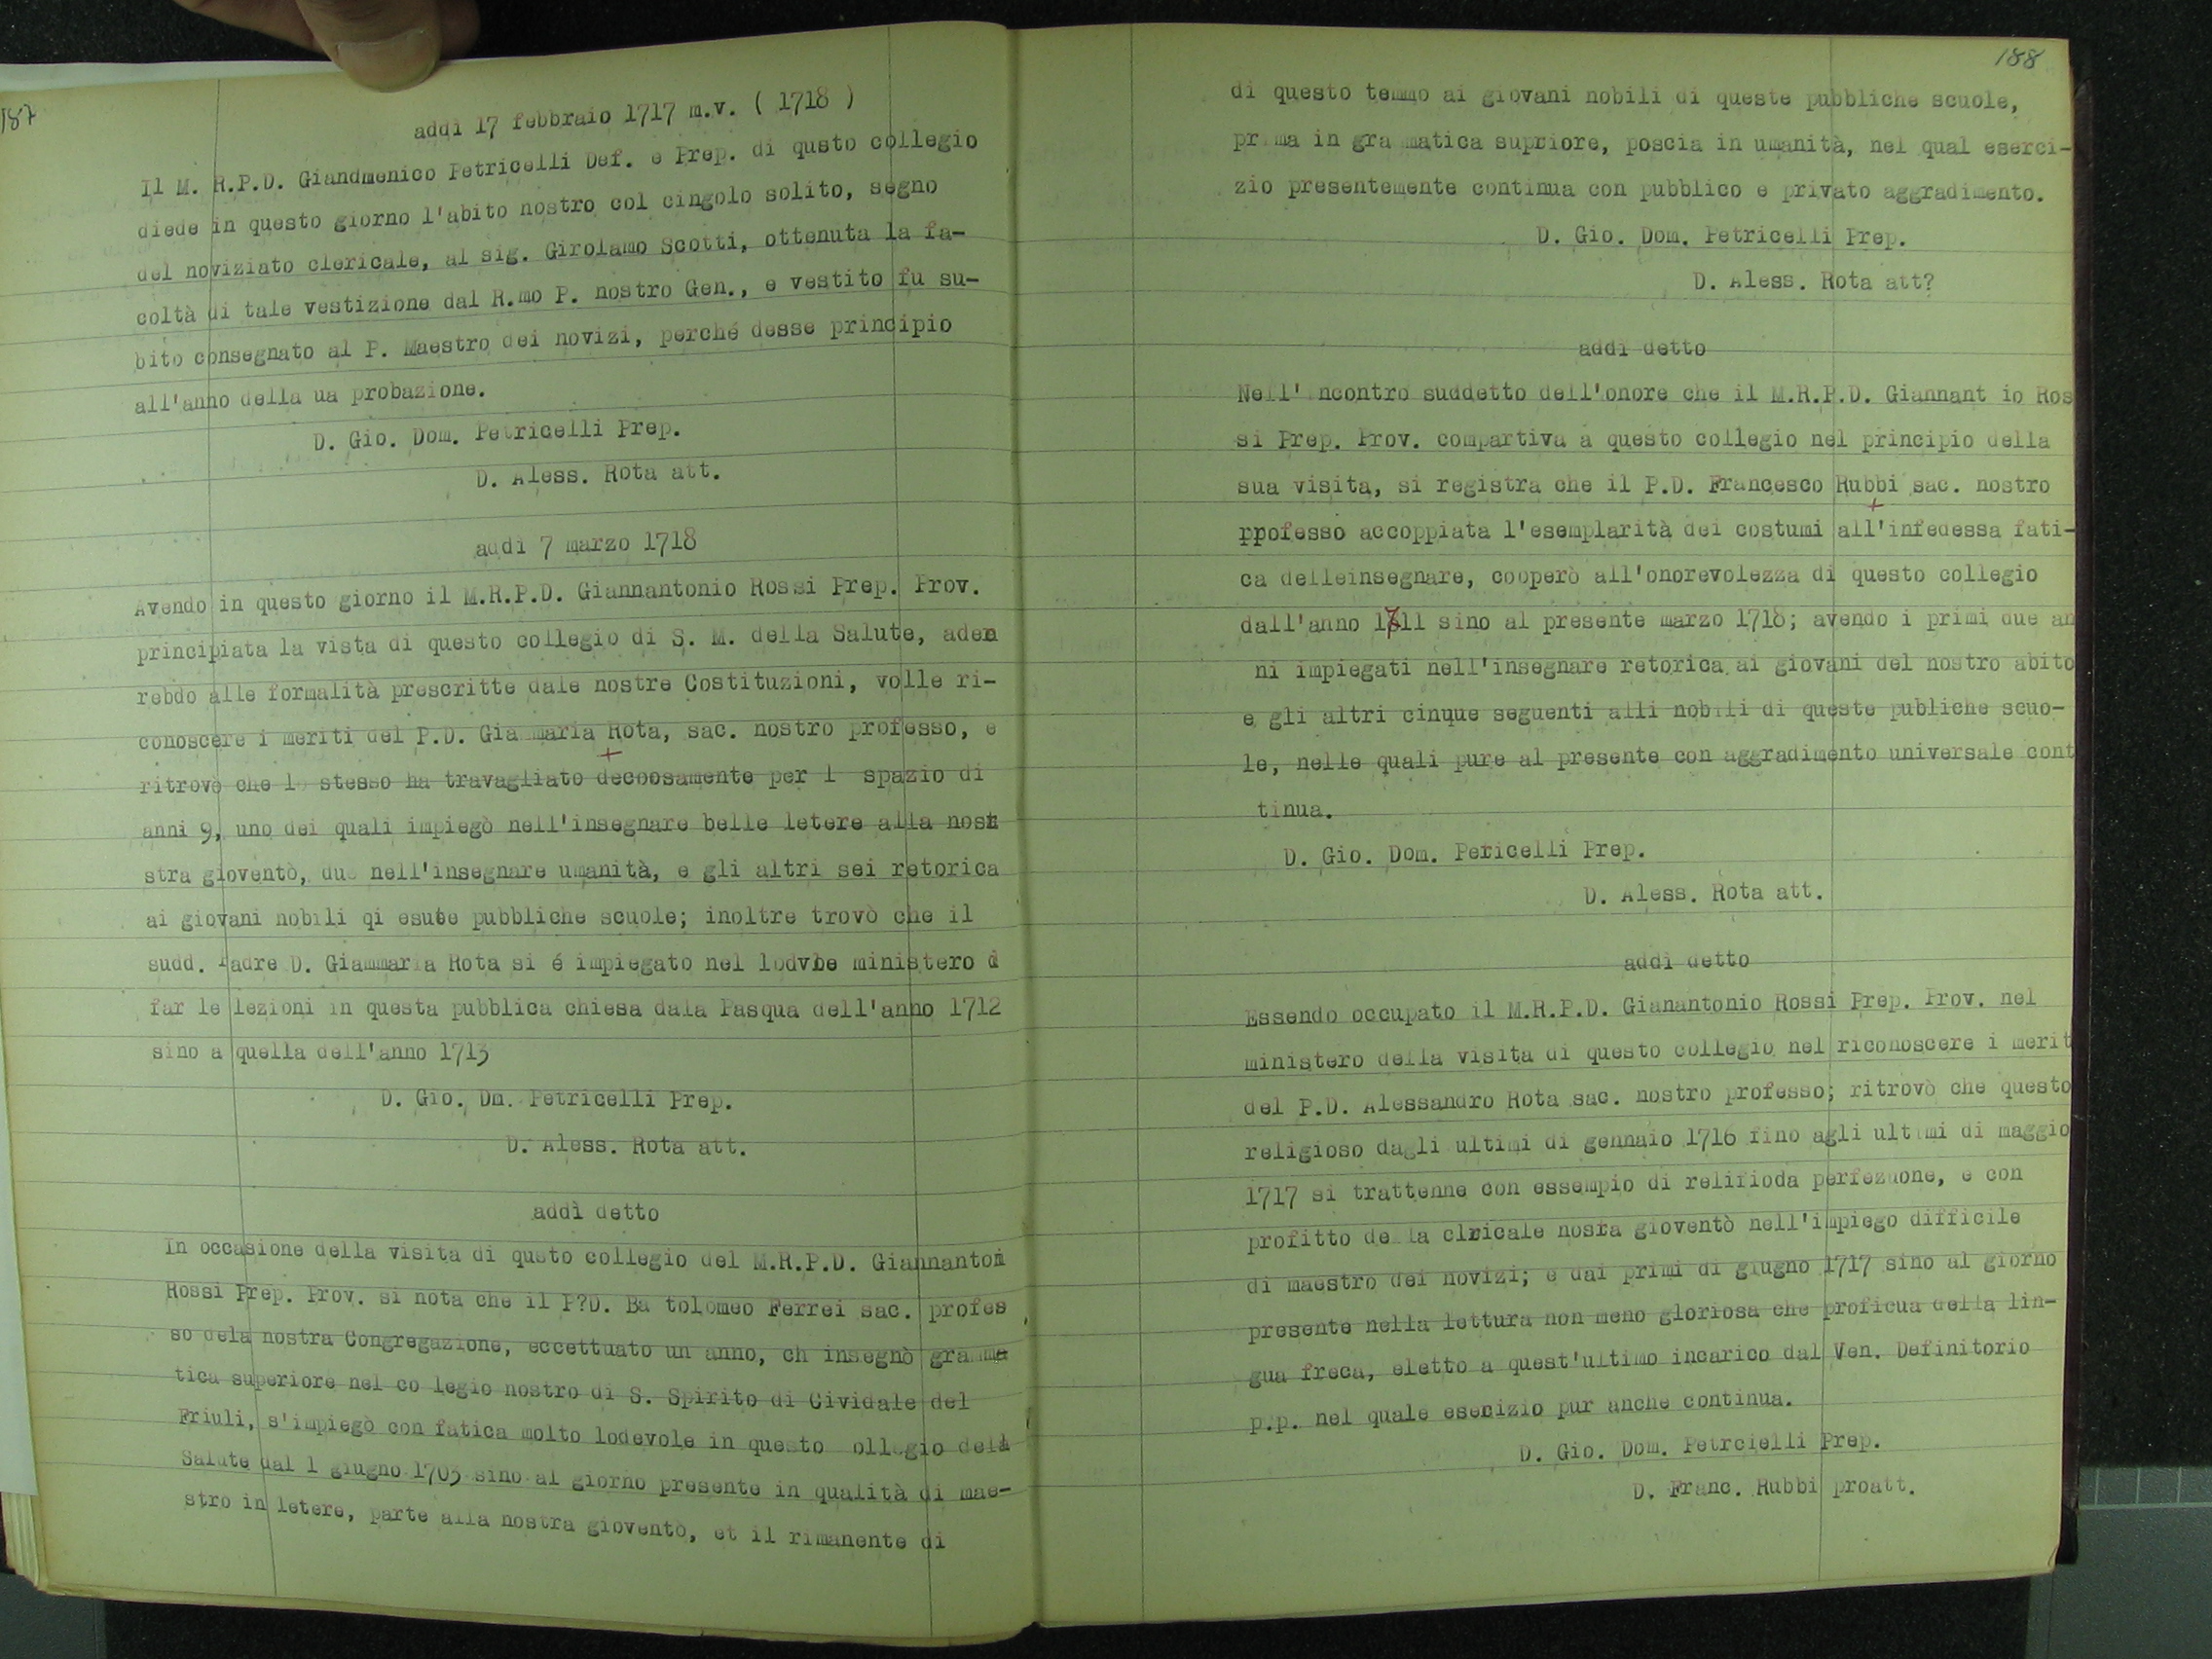 187
addì 17 febbraio 1717 m.v. ( 1718 )
Il M. R.P.D. Giandmenico Petricelli Def. e Prep. di qusto collegio
diede in questo giorno l'abito nostro col cingolo solito, segno
del noviziato clericale, al sig. Girolamo Scotti, ottenuta la fa-
coltà di tale vestizione dal R.mo P. nostro Gen., e vestito fu su-
bito consegnato al P. Maestro dei novizi, perché desse principio
all'anno della ua probazione.
D. Gio. Dom. Petricelli Prep.
D. Aless. Rota att.
addì 7 marzo 1718
Avendo in questo giorno il M.R.P.D. Giannantonio Rossi Prep. Prov.
principiata la vista di questo collegio di S. M. della Salute, aden
rebdo alle formalità prescritte dale nostre Costituzioni, volle ri-
conoscere i meriti del P.D. Gia maria Rota, sac. nostro professo, e
ritrovò che lo stesso ha travagliato decoosamente per l spazio di
anni 9, uno dei quali impiegò nell'insegnare belle letere alla nost
stra gioventò, due nell'insegnare umanità, e gli altri sei retorica
ai giovani nobili qi esute pubbliche scuole; inoltre trovò che il
sudd. Padre D. Giammaria Rota si é impiegato nel lodvle ministero d
far le lezioni in questa pubblica chiesa dala Pasqua dell'anno 1712
sino a quella dell'anno 1713
D. Gio. Dm. Petricelli Prep.
D. Aless. Rota att.
addì detto
In occasione della visita di qusto collegio del M.R.P.D. Giannantoni
Rossi Prep. Prov. si nota che il P?D. Ba tolomeo Ferrei sac. profes
so dela nostra Congregazione, eccettuato un anno, ch insegnò gramma
tica superiore nel co legio nostro di S. Spirito di Cividale del
Friuli, s'impiegò con fatica molto lodevole in questo ollegio della
Salute dal 1 giugno 1703 sino al giorno presente in qualità di mae-
stro in letere, parte alla nostra gioventò, et il rimanente di
188
di questo temmo ai giovani nobili di queste pubbliche scuole,
prima in gra matica supriore, poscia in umanità, nel qual eserci-
zio presentemente continua con pubblico e privato aggradimento.
D. Gio. Dom. Petricelli Prep.
D. Aless. Rota att?
addì detto
Nell' ncontro suddetto dell'onore che il M.R.P.D. Giannant io Ros
si Prep. Prov. compartiva a questo collegio nel principio della
sua visita, si registra che il P.D. Francesco Rubbi sac. nostro
professo accoppiata l'esemplarità dei costumi all'infedessa fati-
ca delleinsegnare, cooperò all'onorevolezza di questo collegio
dall'anno 1711 sino al presente marzo 1718; avendo i primi due an
ni impiegati nell'insegnare retorica ai giovani del nostro abito
e gli altri cinque seguenti alli nobili di queste publiche scuo-
le, nelle quali pure al presente con aggradimento universale cont
tinua.
D. Gio. Dom. Pericelli Prep.
D. Aless. Rota att.
addì detto
Essendo occupato il M.R.P.D. Gianantonio Rossi Prep. Prov. nel
ministero della visita di questo collegio nel riconoscere i merit
del P.D. Alessandro Rota sac. nostro professo; ritrovò che questo
religioso dagli ultimi di gennaio 1716 fino agli ultimi di maggio
1717 si trattenne con essempio di relifioda perfezuone, e con
profitto della clricale nosra gioventò nell'impiego difficile
di maestro dei novizi; e dai primi di giugno 1717 sino al giorno
presente nella lettura non meno gloriosa che proficua della lin-
gua freca, eletto a quest'ultimo incarico dal Ven. Definitorio
p.p. nel quale esecizio pur anche continua.
D. Gio. Dom. Petrcielli Prep.
D. Franc. Rubbi proatt.